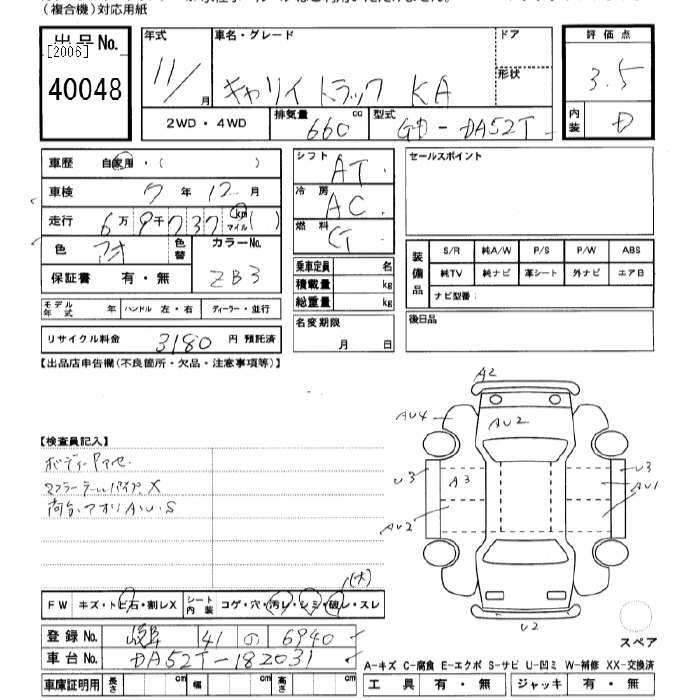 (複合機)対応用紙
出品No.
[2006]
40048
年式
11/
月
車名・グレード
キャリイトラック KA
ドア
形状
2WD・4WD
排気量
660
cc
型式
GD-DA52T
評価点
3.5
内装
D
車歴 自家用・( )
車検 7年 12月
走行 6万 9千 737 km マイル( )
色 アオ
色替
カラーNo.
ZB3
保証書 有・無
モデル年式 年 ハンドル 左・右 ディーラー・並行
リサイクル料金 3180 円 預託済
シフト AT
冷房 AC
燃料
乗車定員 名
積載量 kg
総重量 kg
名変期限
月 日
セールスポイント
装備品
S/R 純A/W P/S P/W ABS
純TV 純ナビ 革シート 外ナビ エアB
ナビ型番:
後日品
【出品店申告欄(不良箇所・欠品・注意事項等)】
【検査員記入】
マフラーテールパイプX
荷台、アオリ A.U.S
A2
AU4
AU2
U3
A3
U3
AU1
AU2
U2
スペア
FW キズ・トビ石・割レX
シート内装 コゲ・穴・汚レ・シミ・破レ・スレ
(大)
登録No. 岐阜 41 の 6940
車台No. DA52T-182031
A-キズ C-腐食 E-エクボ S-サビ U-凹ミ W-補修 XX-交換済
車庫証明用 長さ cm 幅 cm 高さ cm
工具 有・無 ジャッキ 有・無